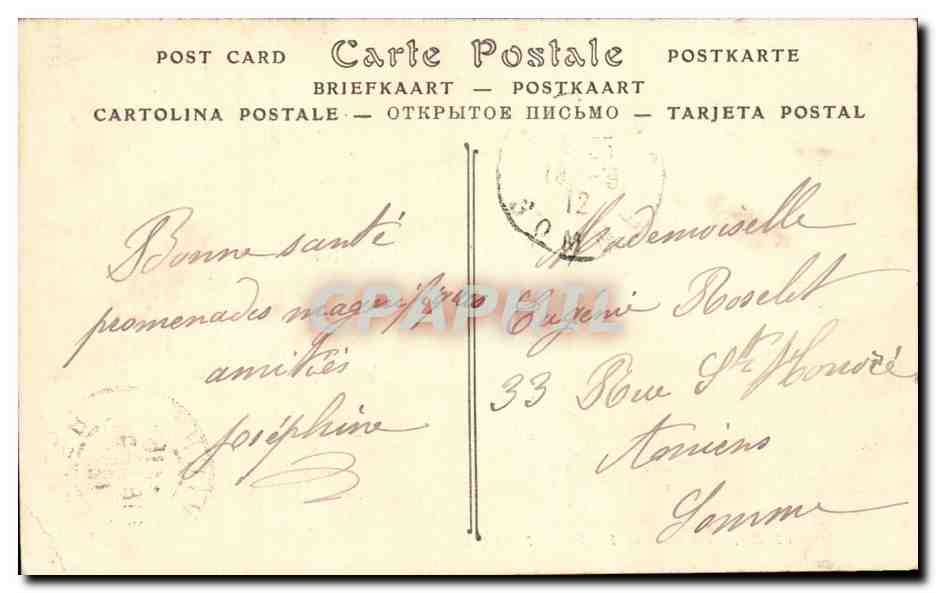 POST CARD Carte Postale POSTKARTE
BRIEFKAART — POSTKAART
CARTOLINA POSTALE — ОТКРЫТОЕ ПИСЬМО — TARJETA POSTAL
Bonne santé
promenades magnifiques
amitiés
Joséphine
12
Mademoiselle
Eugénie Roselet
33 Rue St Honoré
Amiens
Somme
CPAPHIL